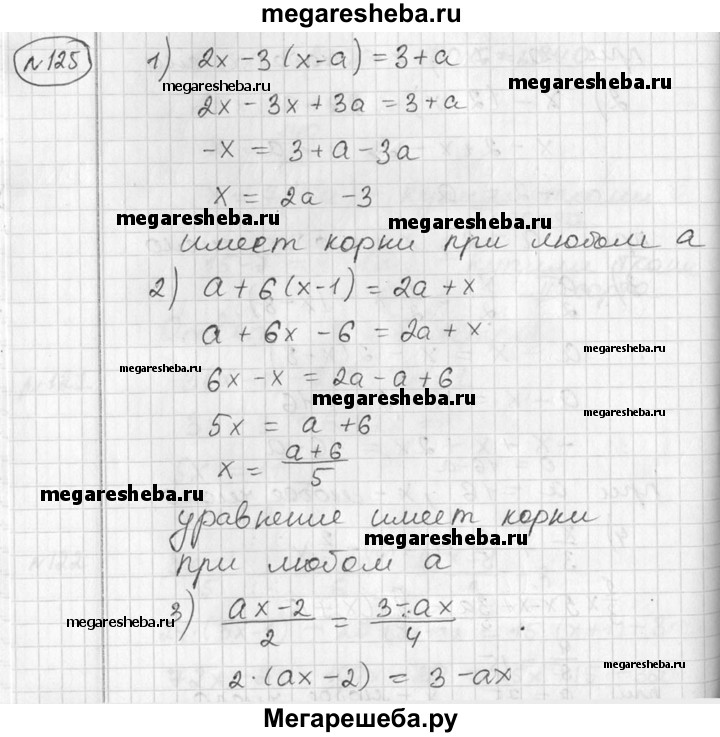 megaresheba.ru
№125 1) 2x - 3·(x-a) = 3+a
megaresheba.ru megaresheba.ru
2x - 3x + 3a = 3+a
-x = 3+a-3a
x = 2a - 3
megaresheba.ru megaresheba.ru
имеет корни при любом a
2) a + 6(x-1) = 2a + x
megaresheba.ru
a + 6x - 6 = 2a + x
megaresheba.ru
megaresheba.ru
6x - x = 2a - a + 6
megaresheba.ru
megaresheba.ru
5x = a + 6
x = (a+6)/5
megaresheba.ru
уравнение имеет корни
megaresheba.ru
при любом a
3) (ax-2)/2 = (3-ax)/4
megaresheba.ru
megaresheba.ru
2·(ax-2) = 3-ax
Мегарешеба.ру